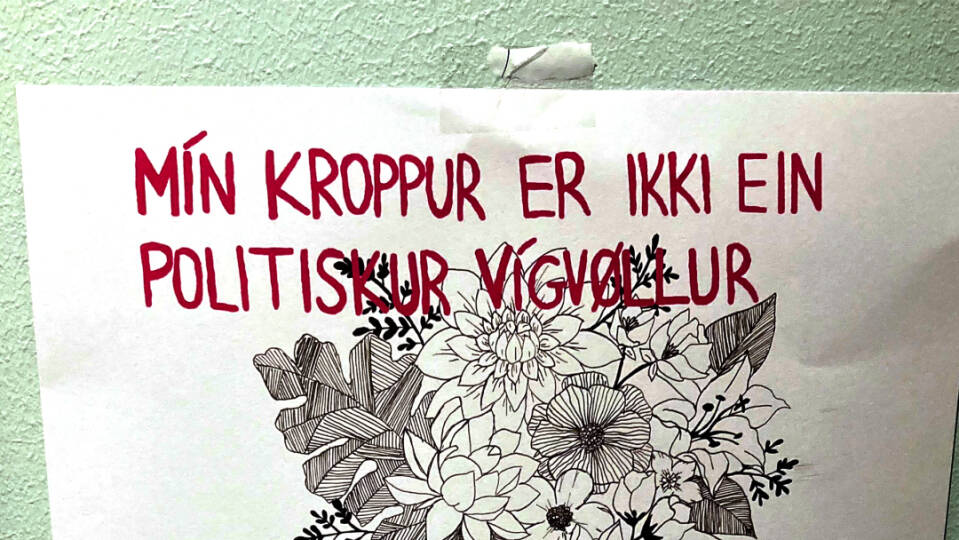 MÍN KROPPUR ER IKKI EIN
POLITISKUR VÍGVØLLUR